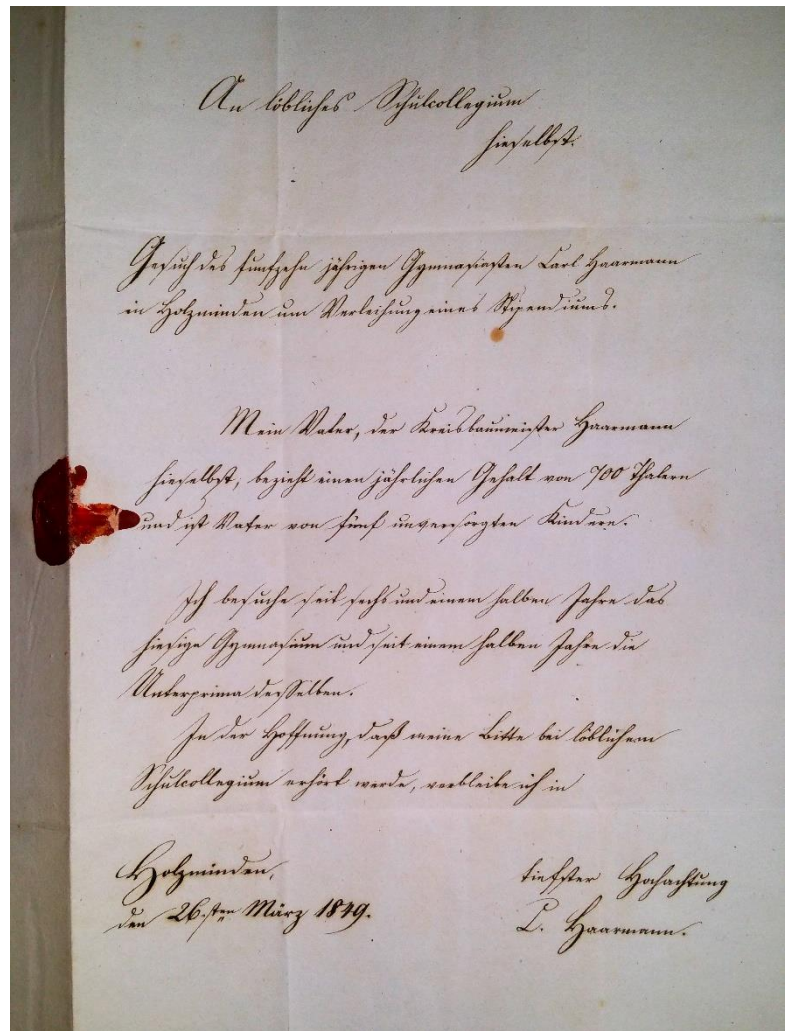 An löbliches Schulcollegium
hieselbst.
Gesuch des funfzehn jährigen Gymnasiasten Carl Haarmann
in Holzminden um Verleihung eines Stipendiums.
Mein Vater, der Kreisbaumeister Haarmann
hieselbst, bezieht einen jährlichen Gehalt von 700 Thalern
und ist Vater von fünf unversorgten Kindern.
Ich besuche seit sechs und einem halben Jahre das
hiesige Gymnasium und seit einem halben Jahre die
Unterprima desselben.
In der Hoffnung, daß meine Bitte bei löblichem
Schulcollegium erhört werde, verbleibe ich in
Holzminden, tiefster Hochachtung
den 26sten März 1849. C. Haarmann.